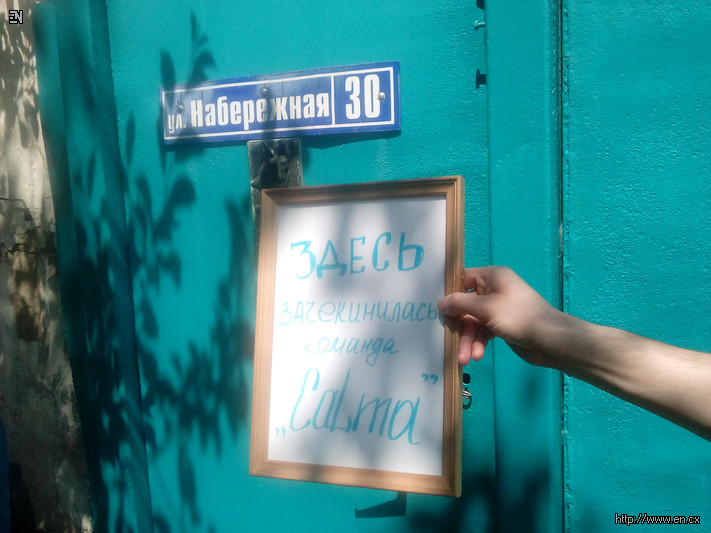 EN
ул. Набережная 30
ЗДЕСЬ
ЗАЧЕКИНИЛАСЬ
команда
„CaLma”
http://www.en.cx